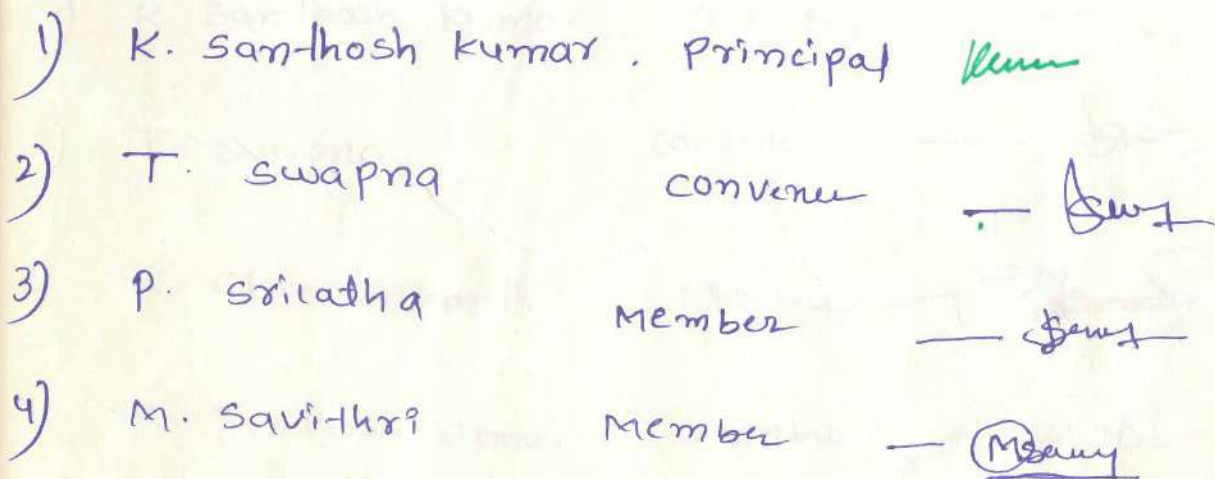 1) K. Santhosh Kumar . Principal
2) T. Swapna Convener —
3) P. Srilatha Member —
4) M. Savithri Member —